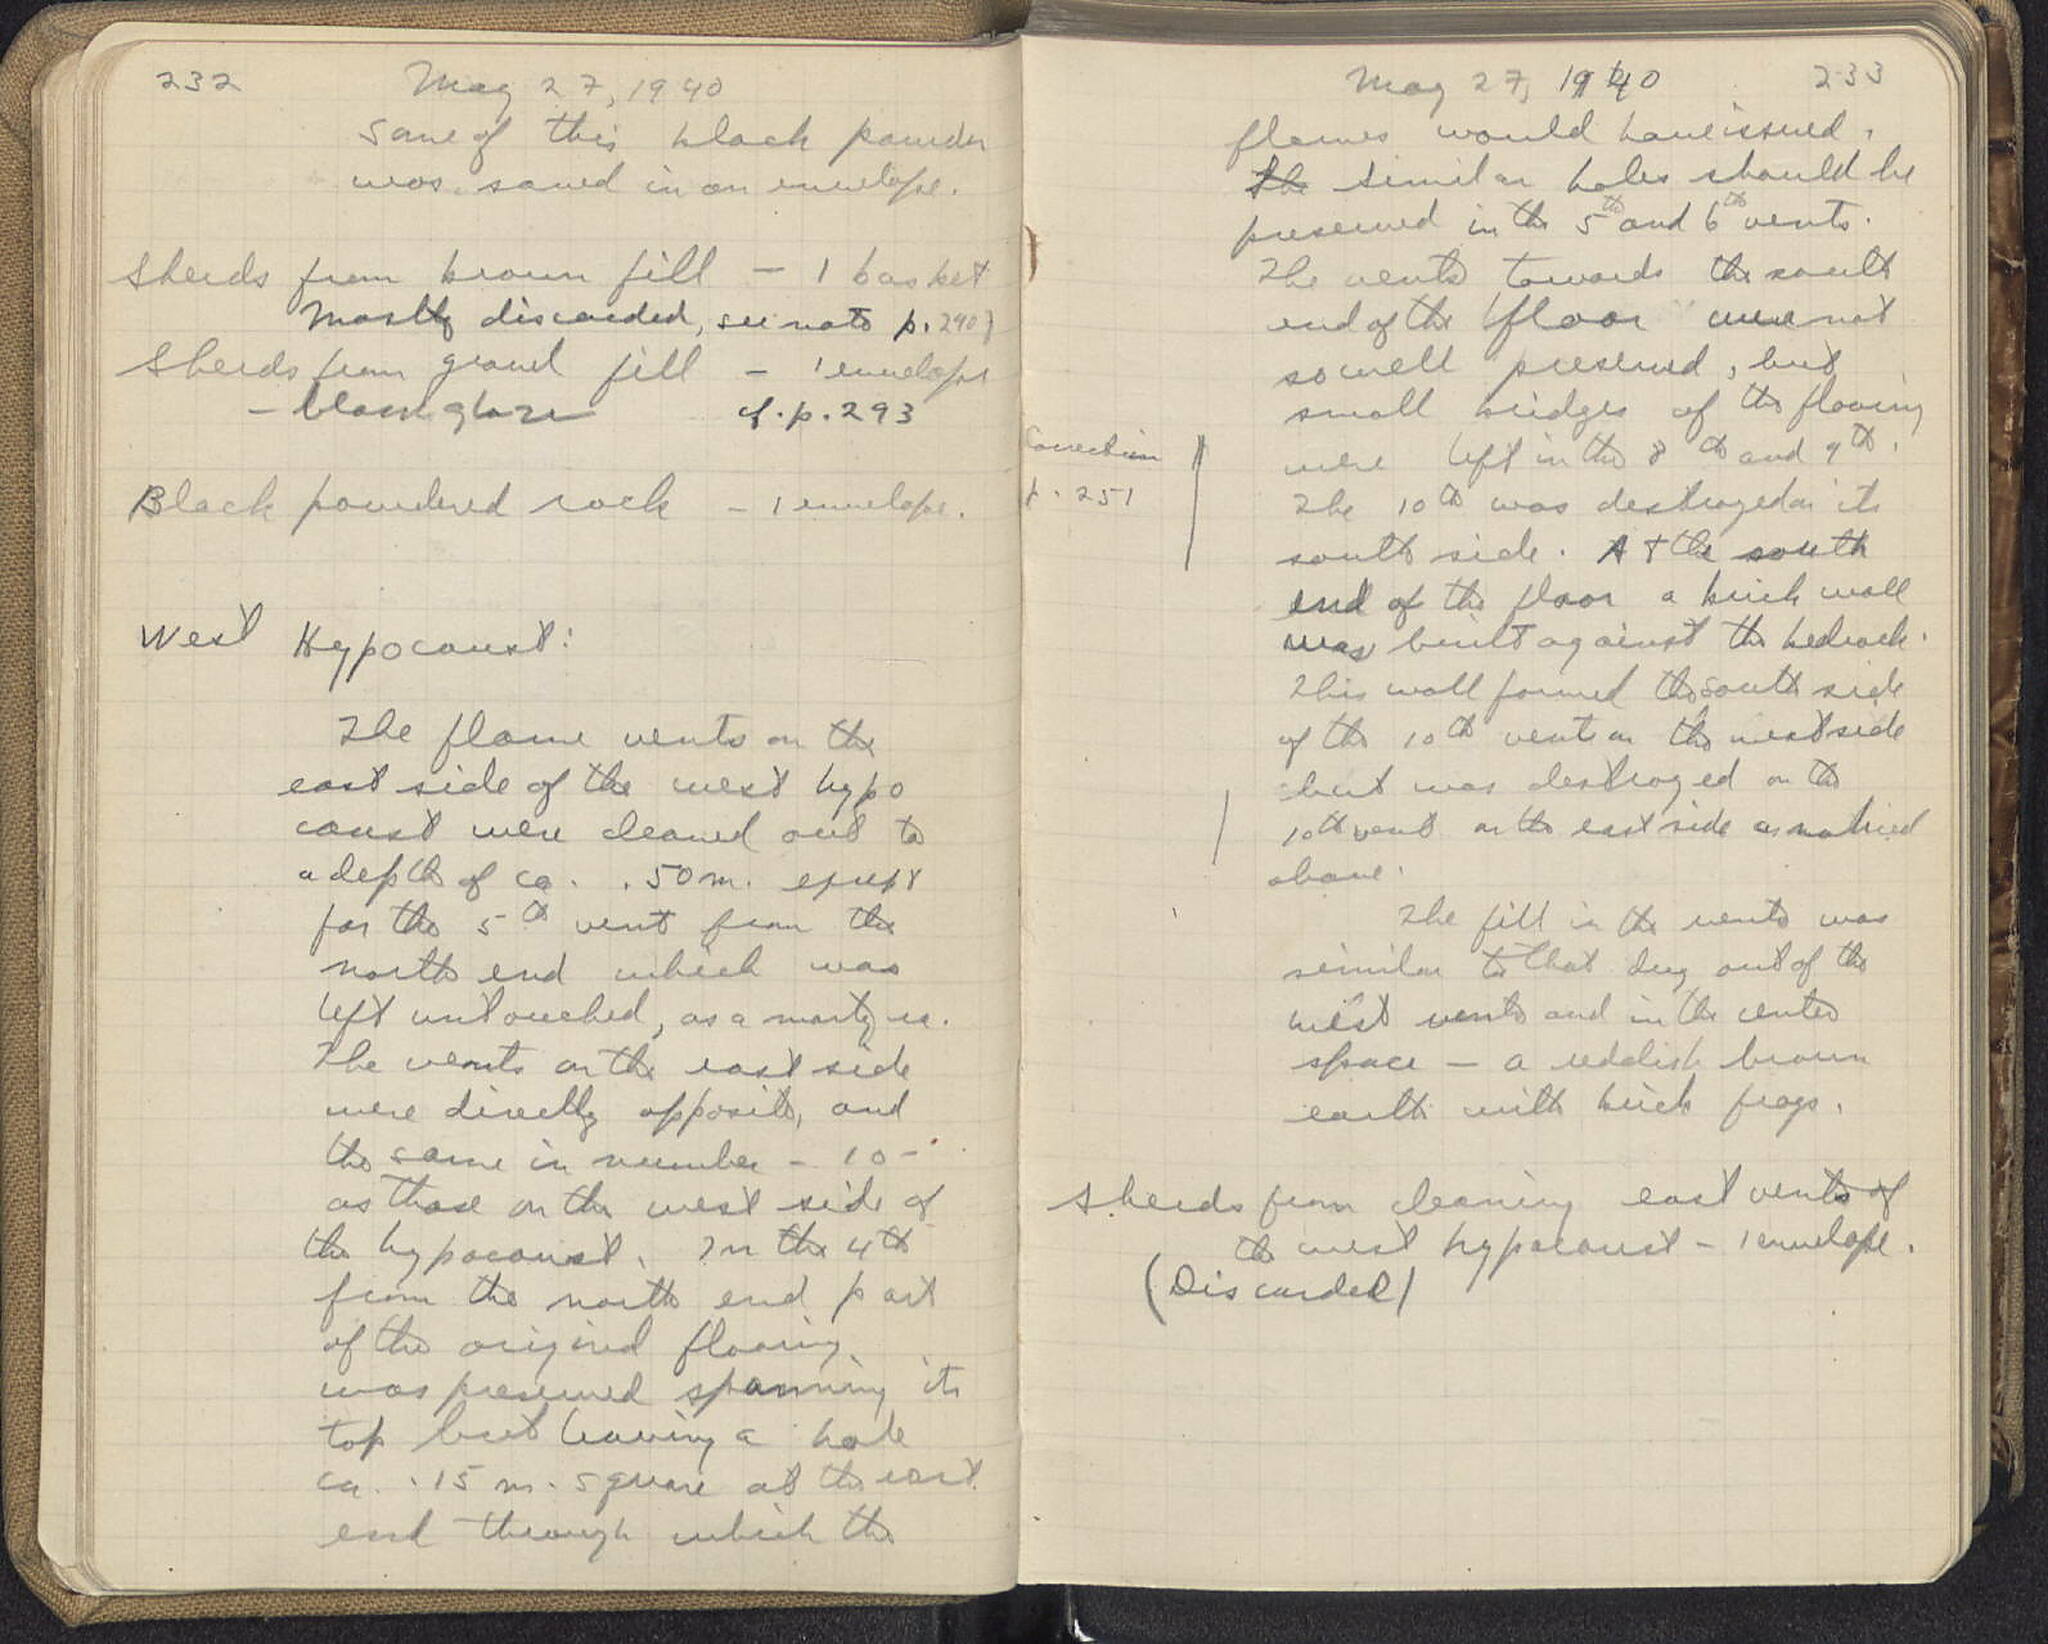 232
May 27, 1940
Some of this black powder
was saved in an envelope.
Sherds from brown fill — 1 basket
Mostly discarded, see note p. 290)
Sherds from gravel fill — 1 envelope
— black glaze cf. p. 293
Black powdered rock — 1 envelope.
West Hypocaust:
The flame vents on the
east side of the west hypo
caust were cleaned out to
a depth of ca. .50 m. except
for the 5th vent from the
north end which was
left untouched, as a martyra.
The vents on the east side
were directly opposite, and
the same in number – 10 –
as those on the west side of
the hypocaust. In the 4th
from the north end part
of the original flooring
was preserved spanning its
top but leaving a hole
ca. .15 m. square at the east
end through which the
May 27, 1940
233
flames would have issued.
The similar holes should be
preserved in the 5th and 6th vents.
The vents towards the south
end of the floor were not
so well preserved, but
small bridges of the flooring
were left in the 8th and 9th.
Correction
p. 251
The 10th was destroyed on its
south side. At the south
end of the floor a brick wall
was built against the bedrock.
This wall formed the south side
of the 10th vent on the west side
but was destroyed on the
10th vent on the east side as noticed
above.
The fill in the vents was
similar to that dug out of the
west vents and in the center
space — a reddish brown
earth with brick frags.
Sherds from cleaning east vents of
the west hypocaust – 1 envelope.
(Discarded)